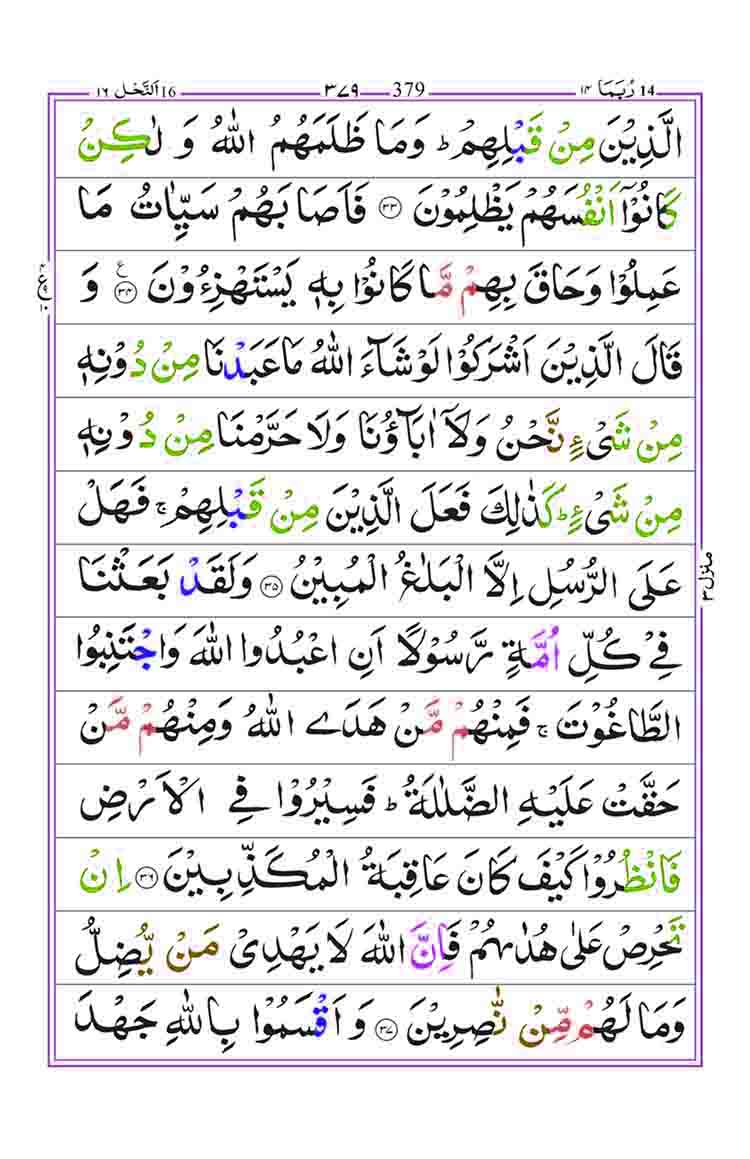 14 رُبَمَا ۱۴ 379 ۳۷۹ 16 اَلنَّحْل ۱۶
الَّذِيْنَ مِنْ قَبْلِهِمْ ؕ وَمَا ظَلَمَهُمُ اللّٰهُ وَ لٰكِنْ
كَانُوْۤا اَنْفُسَهُمْ يَظْلِمُوْنَ ﴿۳۳﴾ فَاَصَابَهُمْ سَيِّاٰتُ مَا
عَمِلُوْا وَحَاقَ بِهِمْ مَّا كَانُوْا بِهٖ يَسْتَهْزِءُوْنَ ﴿۳۴﴾ ع وَ
ع
قَالَ الَّذِيْنَ اَشْرَكُوْا لَوْ شَآءَ اللّٰهُ مَا عَبَدْنَا مِنْ دُوْنِهٖ
مِنْ شَيْءٍ نَّحْنُ وَلَاۤ اٰبَآؤُنَا وَلَا حَرَّمْنَا مِنْ دُوْنِهٖ
مِنْ شَيْءٍ ؕ كَذٰلِكَ فَعَلَ الَّذِيْنَ مِنْ قَبْلِهِمْ ۚ فَهَلْ
عَلَى الرُّسُلِ اِلَّا الْبَلٰغُ الْمُبِيْنُ ﴿۳۵﴾ وَلَقَدْ بَعَثْنَا
منزل ۳
فِيْ كُلِّ اُمَّةٍ رَّسُوْلًا اَنِ اعْبُدُوا اللّٰهَ وَاجْتَنِبُوا
الطَّاغُوْتَ ۚ فَمِنْهُمْ مَّنْ هَدَى اللّٰهُ وَمِنْهُمْ مَّنْ
حَقَّتْ عَلَيْهِ الضَّلٰلَةُ ؕ فَسِيْرُوْا فِي الْاَرْضِ
فَانْظُرُوْا كَيْفَ كَانَ عَاقِبَةُ الْمُكَذِّبِيْنَ ﴿۳۶﴾ اِنْ
تَحْرِصْ عَلٰى هُدٰىهُمْ فَاِنَّ اللّٰهَ لَا يَهْدِيْ مَنْ يُّضِلُّ
وَمَا لَهُمْ مِّنْ نّٰصِرِيْنَ ﴿۳۷﴾ وَ اَقْسَمُوْا بِاللّٰهِ جَهْدَ